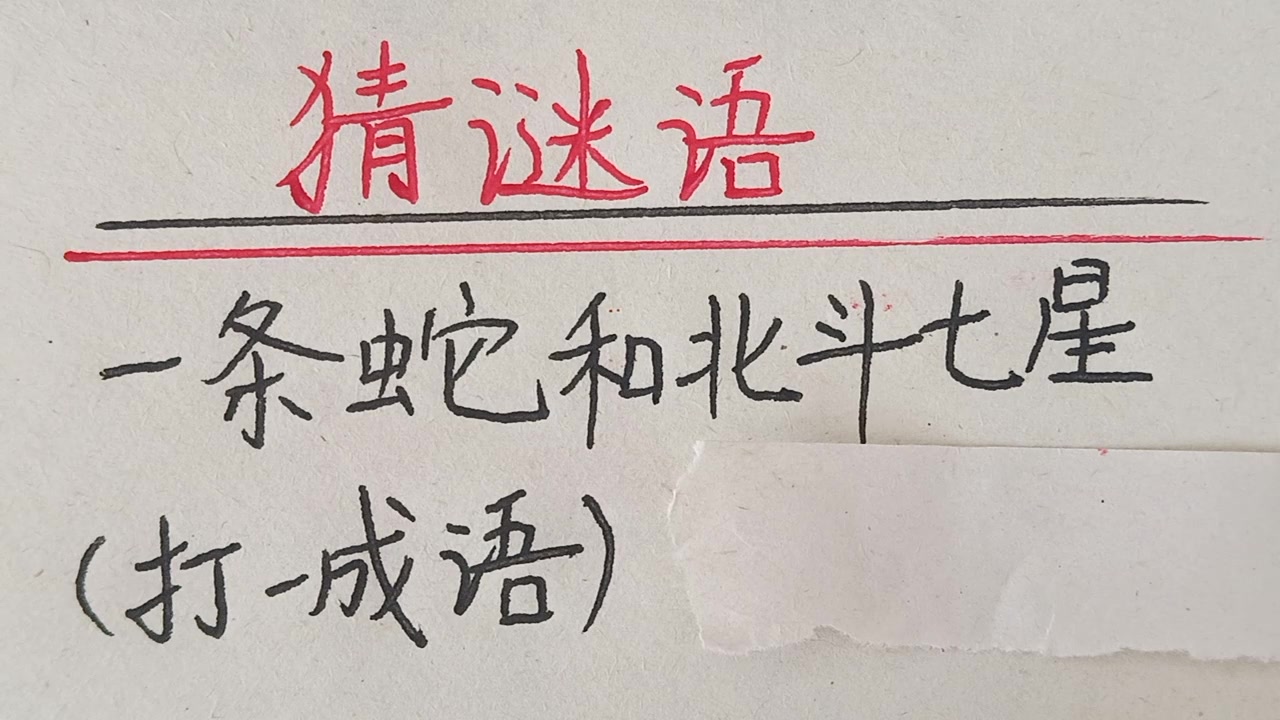 猜谜语
一条蛇和北斗七星
(打一成语)